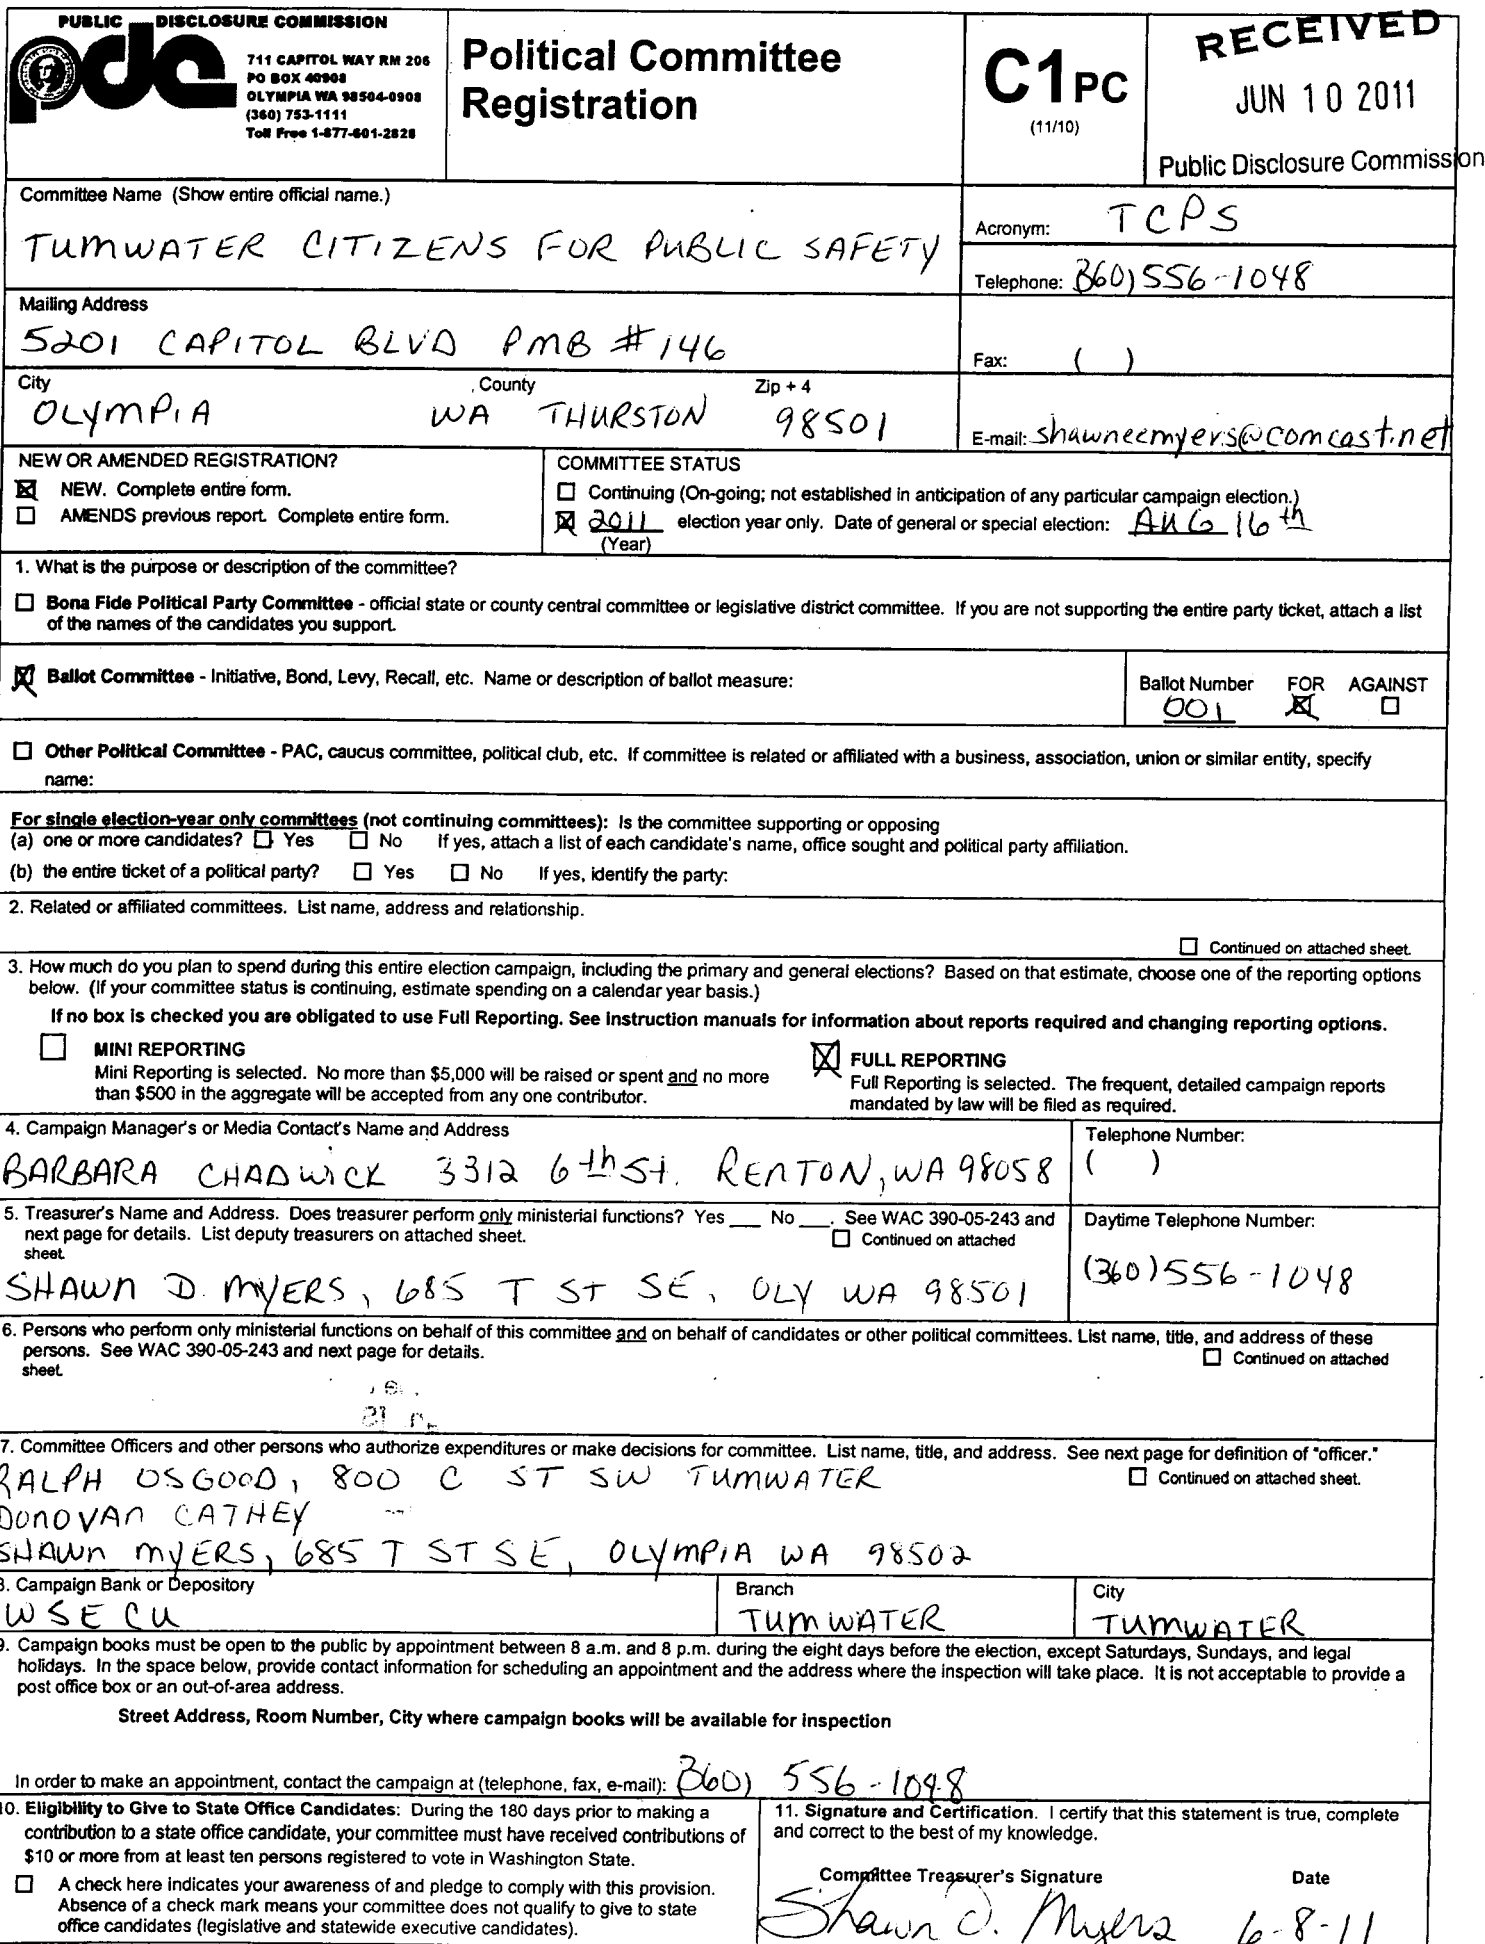 PUBLIC DISCLOSURE COMMISSION
pdc
711 CAPITOL WAY RM 206
PO BOX 40908
OLYMPIA WA 98504-0908
(360) 753-1111
Toll Free 1-877-601-2828
Political Committee
Registration
C1PC
(11/10)
RECEIVED
JUN 10 2011
Public Disclosure Commission
Committee Name (Show entire official name.)
TUMWATER CITIZENS FOR PUBLIC SAFETY
Acronym: TCPS
Telephone: 360) 556-1048
Mailing Address
5201 CAPITOL BLVD PMB #146
Fax: ( )
City County Zip + 4
OLYMPIA WA THURSTON 98501
E-mail: shawneemyers@comcast.net
NEW OR AMENDED REGISTRATION?
NEW. Complete entire form.
AMENDS previous report. Complete entire form.
COMMITTEE STATUS
Continuing (On-going; not established in anticipation of any particular campaign election.)
2011 election year only. Date of general or special election: AUG 16th
(Year)
1. What is the purpose or description of the committee?
Bona Fide Political Party Committee - official state or county central committee or legislative district committee. If you are not supporting the entire party ticket, attach a list
of the names of the candidates you support.
Ballot Committee - Initiative, Bond, Levy, Recall, etc. Name or description of ballot measure:
Ballot Number FOR AGAINST
001
Other Political Committee - PAC, caucus committee, political club, etc. If committee is related or affiliated with a business, association, union or similar entity, specify
name:
For single election-year only committees (not continuing committees): Is the committee supporting or opposing
(a) one or more candidates? Yes No If yes, attach a list of each candidate's name, office sought and political party affiliation.
(b) the entire ticket of a political party? Yes No If yes, identify the party:
2. Related or affiliated committees. List name, address and relationship.
Continued on attached sheet.
3. How much do you plan to spend during this entire election campaign, including the primary and general elections? Based on that estimate, choose one of the reporting options
below. (If your committee status is continuing, estimate spending on a calendar year basis.)
If no box is checked you are obligated to use Full Reporting. See instruction manuals for information about reports required and changing reporting options.
MINI REPORTING
Mini Reporting is selected. No more than $5,000 will be raised or spent and no more
than $500 in the aggregate will be accepted from any one contributor.
FULL REPORTING
Full Reporting is selected. The frequent, detailed campaign reports
mandated by law will be filed as required.
4. Campaign Manager's or Media Contact's Name and Address
BARBARA CHADWICK 3312 6th St. RENTON, WA 98058
Telephone Number:
( )
5. Treasurer's Name and Address. Does treasurer perform only ministerial functions? Yes ___ No ___. See WAC 390-05-243 and
next page for details. List deputy treasurers on attached sheet. Continued on attached
sheet.
SHAWN D. MYERS, 685 T ST SE, OLY WA 98501
Daytime Telephone Number:
(360) 556-1048
6. Persons who perform only ministerial functions on behalf of this committee and on behalf of candidates or other political committees. List name, title, and address of these
persons. See WAC 390-05-243 and next page for details. Continued on attached
sheet.
7. Committee Officers and other persons who authorize expenditures or make decisions for committee. List name, title, and address. See next page for definition of "officer."
Continued on attached sheet.
RALPH OSGOOD, 800 C ST SW TUMWATER
DONOVAN CATHEY
SHAWN MYERS, 685 T ST SE, OLYMPIA WA 98502
8. Campaign Bank or Depository
WSECU
Branch
TUMWATER
City
TUMWATER
9. Campaign books must be open to the public by appointment between 8 a.m. and 8 p.m. during the eight days before the election, except Saturdays, Sundays, and legal
holidays. In the space below, provide contact information for scheduling an appointment and the address where the inspection will take place. It is not acceptable to provide a
post office box or an out-of-area address.
Street Address, Room Number, City where campaign books will be available for inspection
In order to make an appointment, contact the campaign at (telephone, fax, e-mail): 360) 556-1048
10. Eligibility to Give to State Office Candidates: During the 180 days prior to making a
contribution to a state office candidate, your committee must have received contributions of
$10 or more from at least ten persons registered to vote in Washington State.
A check here indicates your awareness of and pledge to comply with this provision.
Absence of a check mark means your committee does not qualify to give to state
office candidates (legislative and statewide executive candidates).
11. Signature and Certification. I certify that this statement is true, complete
and correct to the best of my knowledge.
Committee Treasurer's Signature Date
Shawn D. Myers 6-8-11